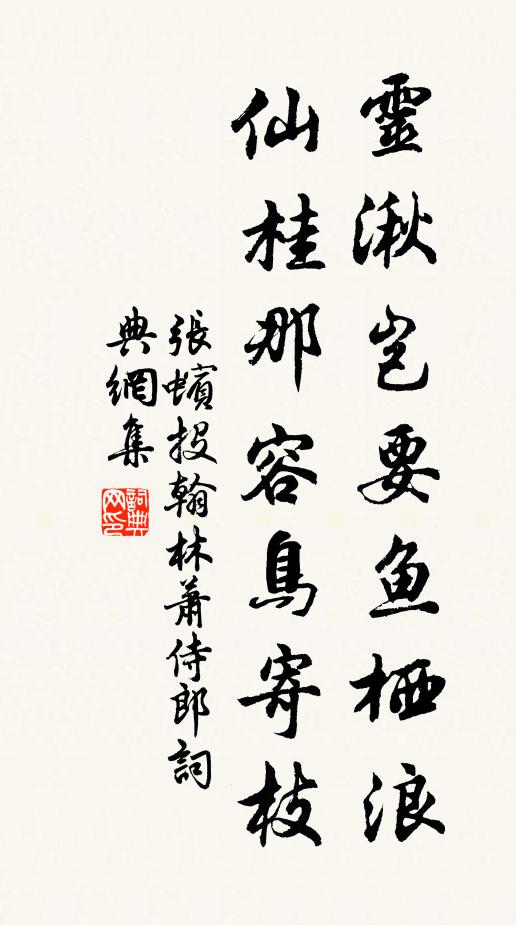 靈湫豈要魚栖浪
仙桂那容鳥寄枝
張蠙投翰林蕭侍郎詞
典網集
詞典網印